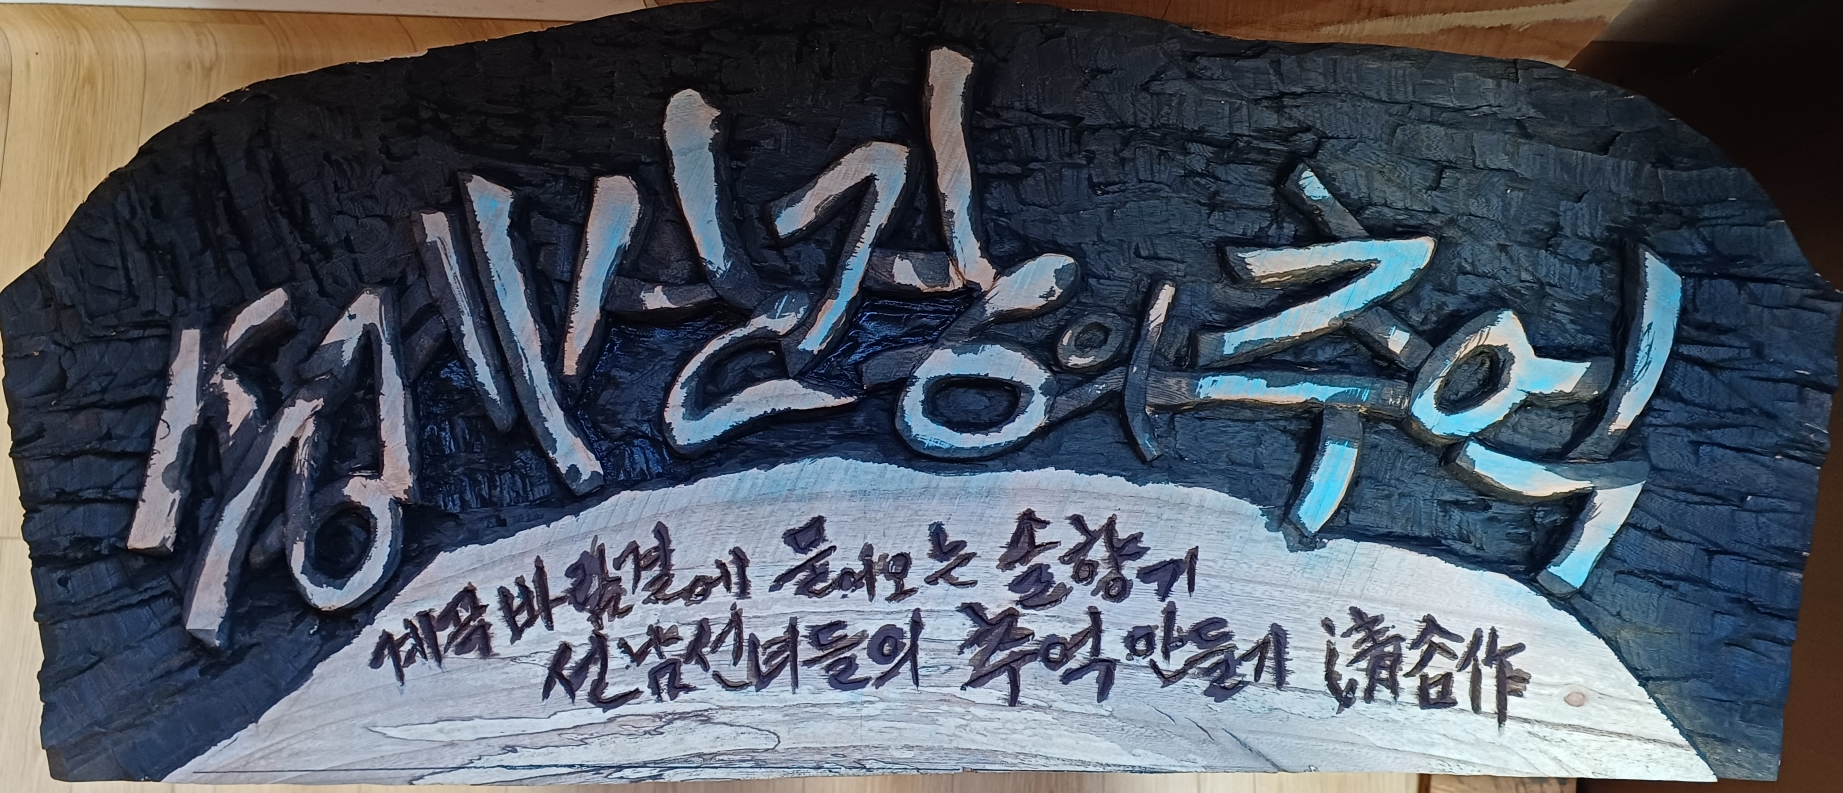 의 추억
계곡 바람결에 묻어오는 솔향기
선남선녀들의 추억 만들기 淸谷作